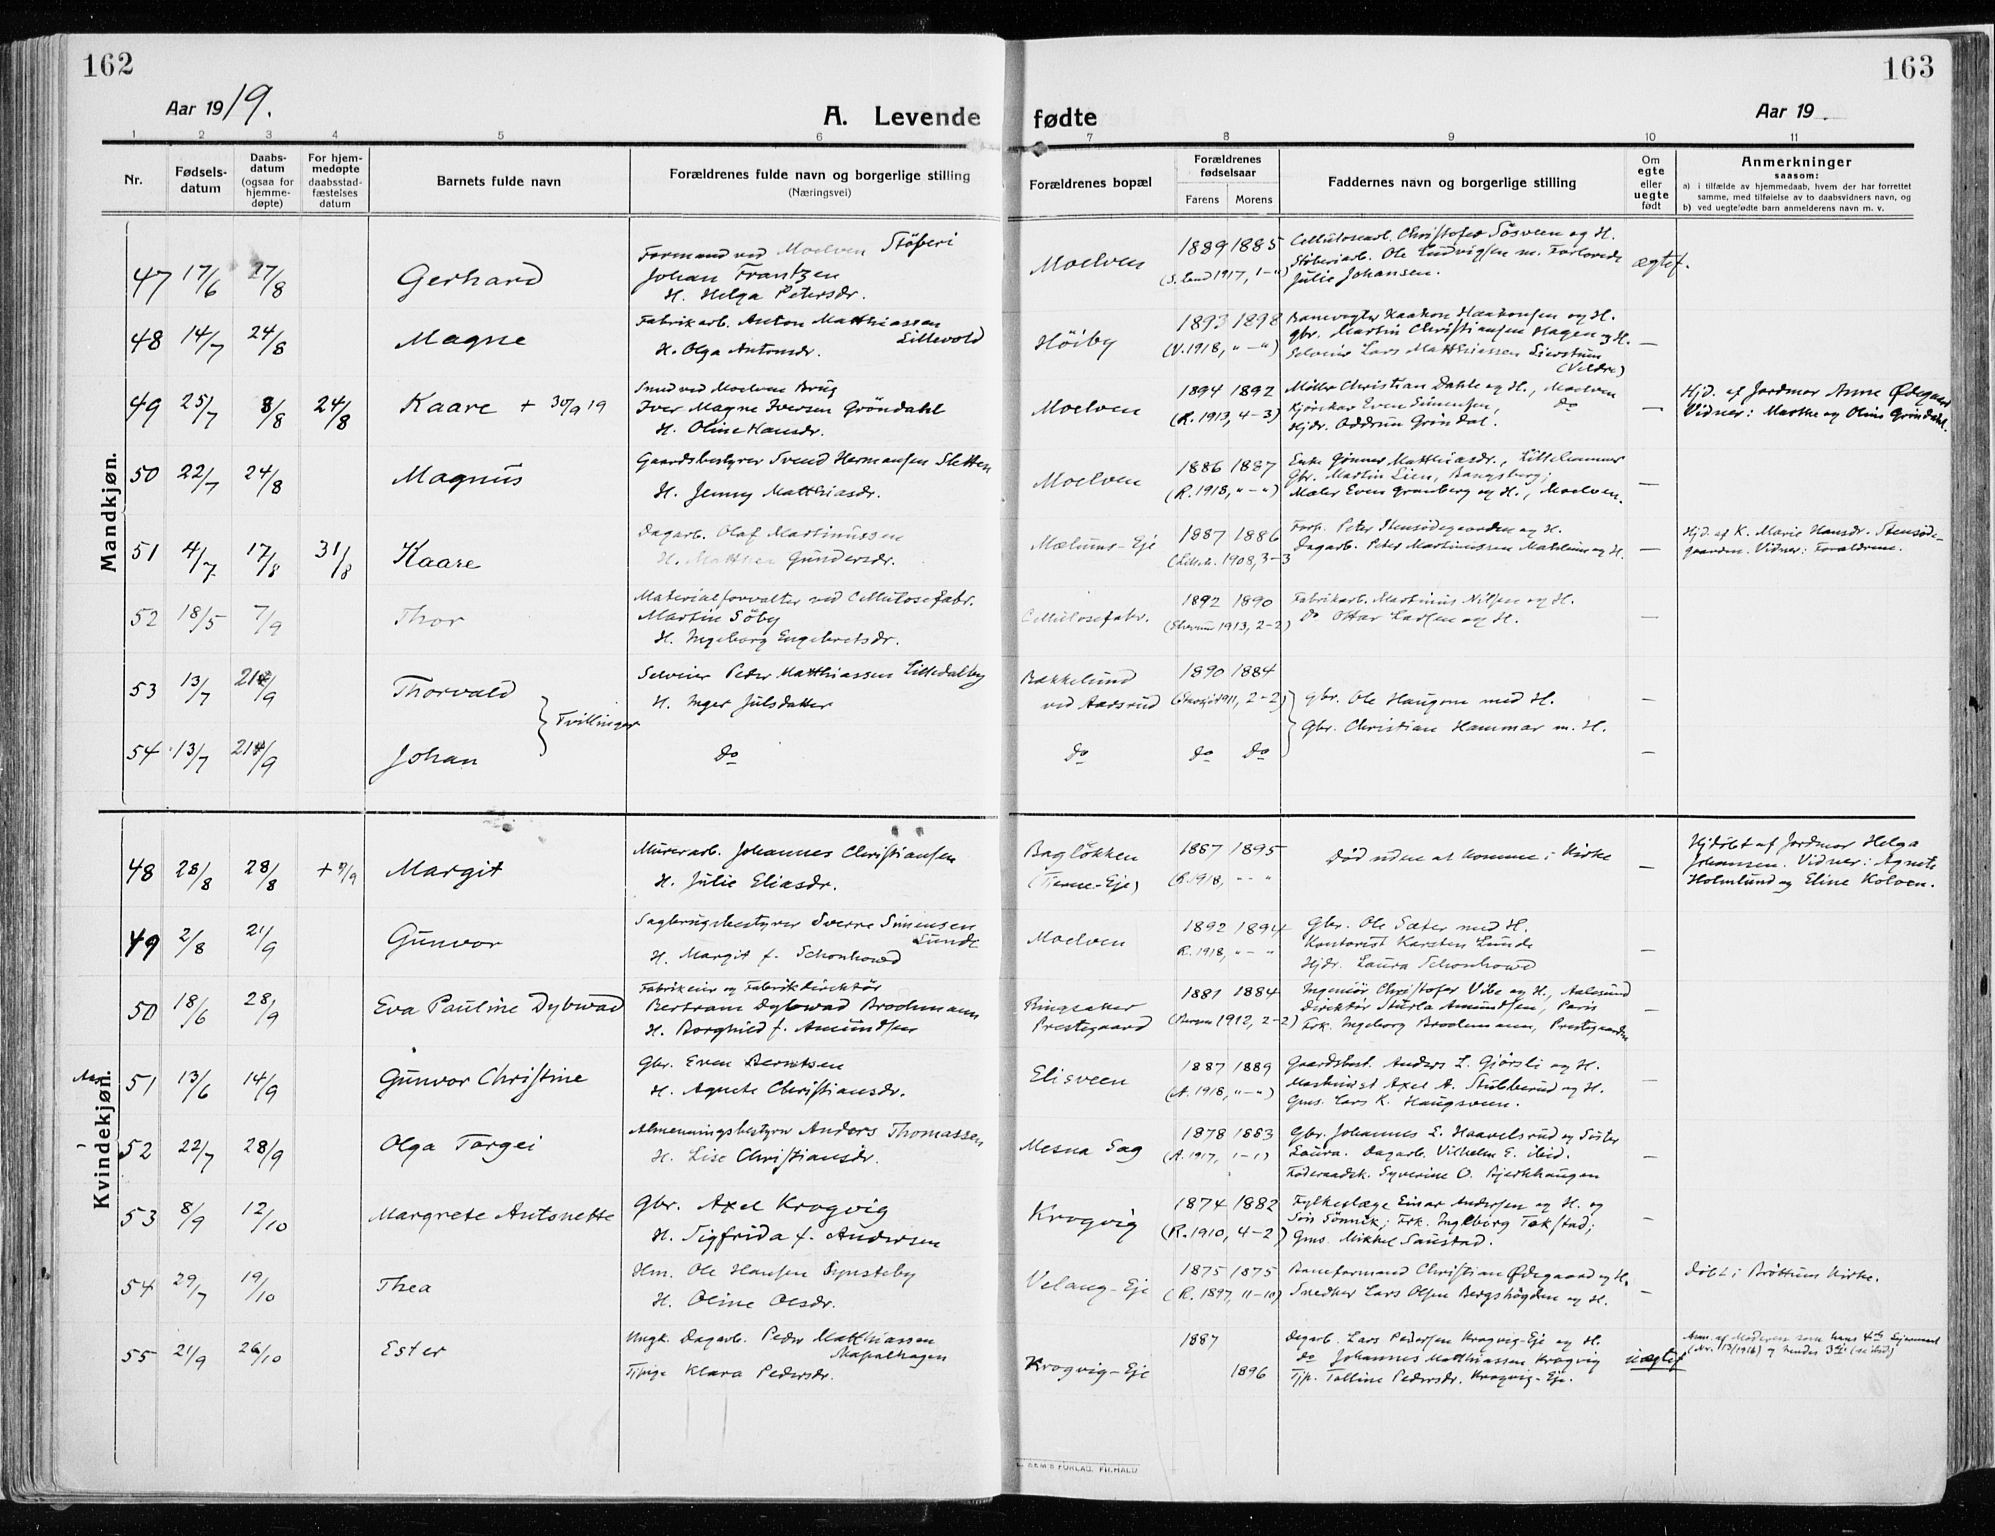 162
163
Aar 1919.
A. Levende fødte
Aar 19
1 2 3 4 5 6 7 8 9 10 11
Nr.
Fødsels-
datum
Daabs-
datum
(ogsaa for
hjemme-
døpte)
For hjem-
medøpte
daabsstad-
fæstelses
datum
Barnets fulde navn
Forældrenes fulde navn og borgerlige stilling
(Næringsvei)
Forældrenes bopæl
Forældrenes
fødselsaar
Farens Morens
Faddernes navn og borgerlige stilling
Om
egte
eller
uegte
født
Anmerkninger
saasom:
a) i tilfælde av hjemmedaab, hvem der har forrettet
samme, med tilføielse av to daabsvidners navn, og
b) ved uegtefødte barn anmelderens navn m. v.
Mandkjøn.
47 17/6 17/8 Gerhard
Formand ved Moelven Støberi
Johan Frantzen
H. Helga Petersdr.
Moelven
1889 1885
Cellulosearb. Christofer Sösveen og H.
Støberiarb. Ole Ludvigsen m. Forlovede
Julie Johansen.
ægtef.
48 14/7 24/8 Magne
Fabrikarb. Anton Matthiassen
Lillevold
H. Olga Antonsdr.
Høiby
1893 1898
(V. 1918, " - ")
Banevogter Haakon Haakonsen og H.
gbr. Martin Christiansen Hagen og H.
Selveier Lars Matthiassen
(Veldre)
—
49 25/7 8/8 24/8 Kaare + 30/9 19
Smed ved Moelven Brug
Iver Magne Iversen Gröndahl
H. Oline Hansdr.
Moelven
1894 1892
(R. 1913, 4-3)
Møller Christian Dahle og H., Moelven
Even Simensen, do
Hjdr. Oddrun Gröndal.
—
Hjd. af Jordmor Anne Ødegaard
Vidner: Marthe og Oline Gröndahl.
50 22/7 24/8 Magnus
Gaardsbestyrer Svend Hermansen Sletten
H. Jenny Matthiasdr.
Moelven
1886 1887
(R. 1918, " - ")
Enke Gunner Matthiasdr., Lillehammer
Gbr. Martin Lien, Bangsberg;
Maler Even Granberg og H., Moelven.
—
51 4/7 17/8 31/8 Kaare
Dagarb. Olaf Martinussen
H. Matthea Gundersdr.
Mælums-Eje
1887 1886
(Lilleh. 1908, 3-3
Forp. Peter Stensødegaarden og H.
Dagarb. Peter Martinussen Mælum og H.
—
Hjd. af K. Marie Hansdr. Stensøde-
gaarden. Vidner: Forældrene.
52 18/5 7/9 Thor
Materialforvalter ved Cellulosefabr.
Martin Söby
H. Ingeborg Engebretsdr.
Cellulosefabr.
1892 1890
(Elverum 1913, 2-2)
Fabrikarb. Martinius Nilsen og H.
do Ottar Larsen og H.
—
53 13/7 21/9 Thorvald
Selveier Peder Matthiassen Lilledalby
H. Inger Julsdatter
Bakkelund
ved Aasrud
1890 1884
gbr. Ole Haugom med H.
Gbr. Christian Hammar m. H.
—
Tvillinger
54 13/7 21/9 Johan
do
do
do do
—
Kvindekjøn.
48 28/8 28/8 + 5/9 Margit
Murerarb. Johannes Christiansen
H. Julie Eliasdr.
Bagløkken
(Tjerne-Eje)
1887 1895
(R. 1918, " - "
Død uden at komme i Kirke
—
Hjdöbt af Jordmor Helga
Johansen. Vidner: Agnete
Holmlund og Eline Kolven.
49 2/8 21/9 Gunvor
Sagbrugsbestyrer Sverre Simensen
Lunde
H. Margit f. Schonhowd
Moelven
1892 1894
R. 1918, " - "
Gbr. Ole Sæter med H.
Kontorist Karsten Lunde
Hjdr. Laura Schonhowd
—
50 18/6 28/9 Eva Pauline Dybwad
Fabrikeier og Fabrikdirektør
Bertram Dybwad Brochmann
H. Borghild f. Amundsen
Ringsaker
Prestegaard
1881 1884
(Bergen 1912, 2-2)
Ingeniør Christofer Vibe og H., Aalesund
Direktør Sturla Amundsen, Paris
Frk. Ingeborg Brochmann, Prestegaarden
—
51 13/6 14/9 Gunvor Christine
Gbr. Even Berntsen
H. Agnete Christiansdr.
Elisveen
1887 1889
(A. 1918, " - ")
Gaardsbest. Anders L. Gjørsli og H.
Maskinist Axel A. Stubberud og H.
Gms. Lars K. Haugsveen.
—
52 22/7 28/9 Olga Torgei
Almenningsbestyrer Anders Thomassen
H. Lise Christiansdr.
Mesna Sag
1878 1883
(A. 1917, 1-1)
Gbr. Johannes E. Haavelsrud og Søster
Laura. Dagarb. Vilhelm E. ibid.
Føderaadsk. Syverine O. Bjerkhaugen
—
53 8/9 12/10 Margrete Antonette
Gbr. Axel Krogvig
H. Sigfrida f. Andersen
Krogvig
1874 1882
(R. 1910, 4-2)
Fylkeslæge Einar Andersen og H. og
Søn Sönnik; Frk. Ingeborg Tokstad;
Gms. Mikkel Saustad.
—
54 29/7 19/10 Thea
Hm. Ole Hansen Synsteby
H. Oline Olsdr.
Velang-Eje
1875 1875
(R. 1897, 11-10)
Baneformand Christian Ødegaard og H.
Snedker Lars Olsen Bergshögden og H.
—
Døbt i Brøttum Kirke.
55 21/9 26/10 Ester
Ungk. Dagarb. Peder Matthiassen
Tjpige Klara Pedersdr.
Krogvig-Eje
1887
1896
Dagarb. Lars Pedersen Krogvig-Eje og H.
do Johannes Matthiassen Krogvig
Tjp.Талline Pedersdr. Krogvig-Eje.
uægtef
Anm. af Moderen som hans 4de
(Nr. 13/1916) og hendes 3die (ibid)
SEM'S FORLAG, FR.HALD